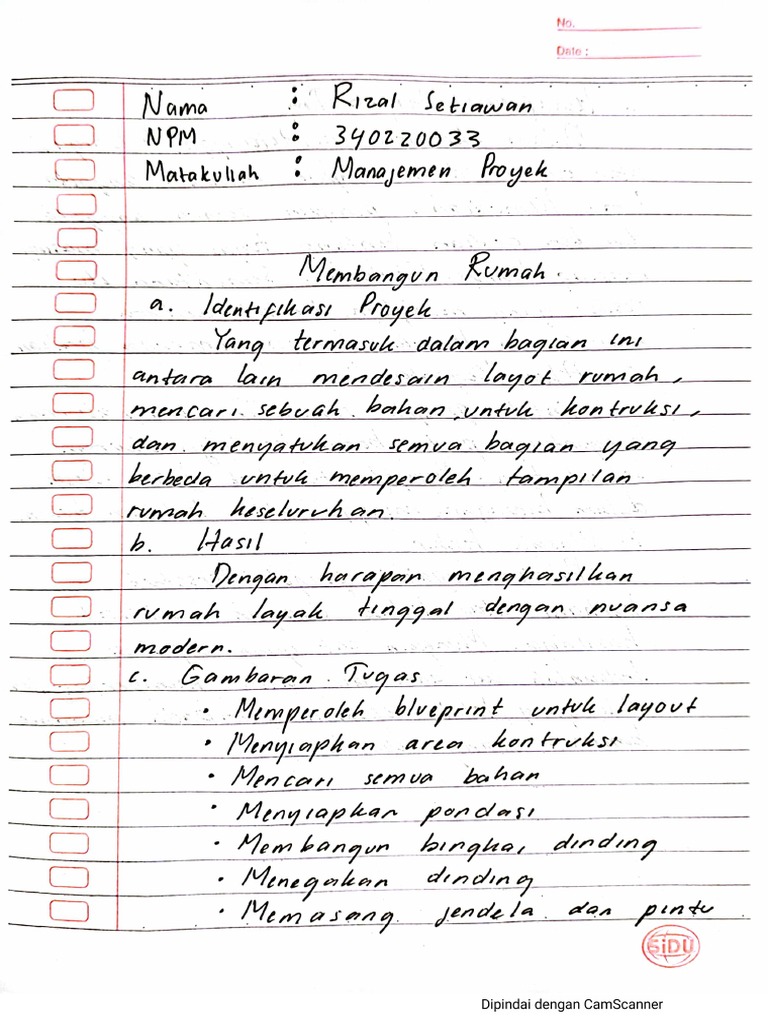 No.
Date :
Nama : Rizal Setiawan
NPM : 340220033
Matakuliah : Manajemen Proyek
Membangun Rumah.
a. Identifikasi Proyek
Yang termasuk dalam bagian ini
antara lain mendesain layot rumah,
mencari sebuah bahan untuk kontruksi,
dan menyatukan semua bagian yang
berbeda untuk memperoleh tampilan
rumah keseluruhan.
b. Hasil
Dengan harapan menghasilkan
rumah layak tinggal dengan nuansa
modern.
c. Gambaran Tugas
• Memperoleh blueprint untuk layout
• Menyiapkan area kontruksi
• Mencari semua bahan
• Menyiapkan pondasi
• Membangun bingkai dinding
• Menegakan dinding
• Memasang jendela dan pintu
SiDU
Dipindai dengan CamScanner